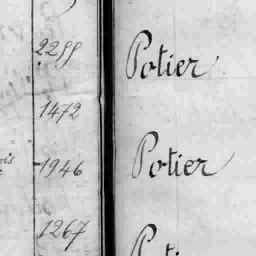 2299 Potier
1472
1946 Potier
1267